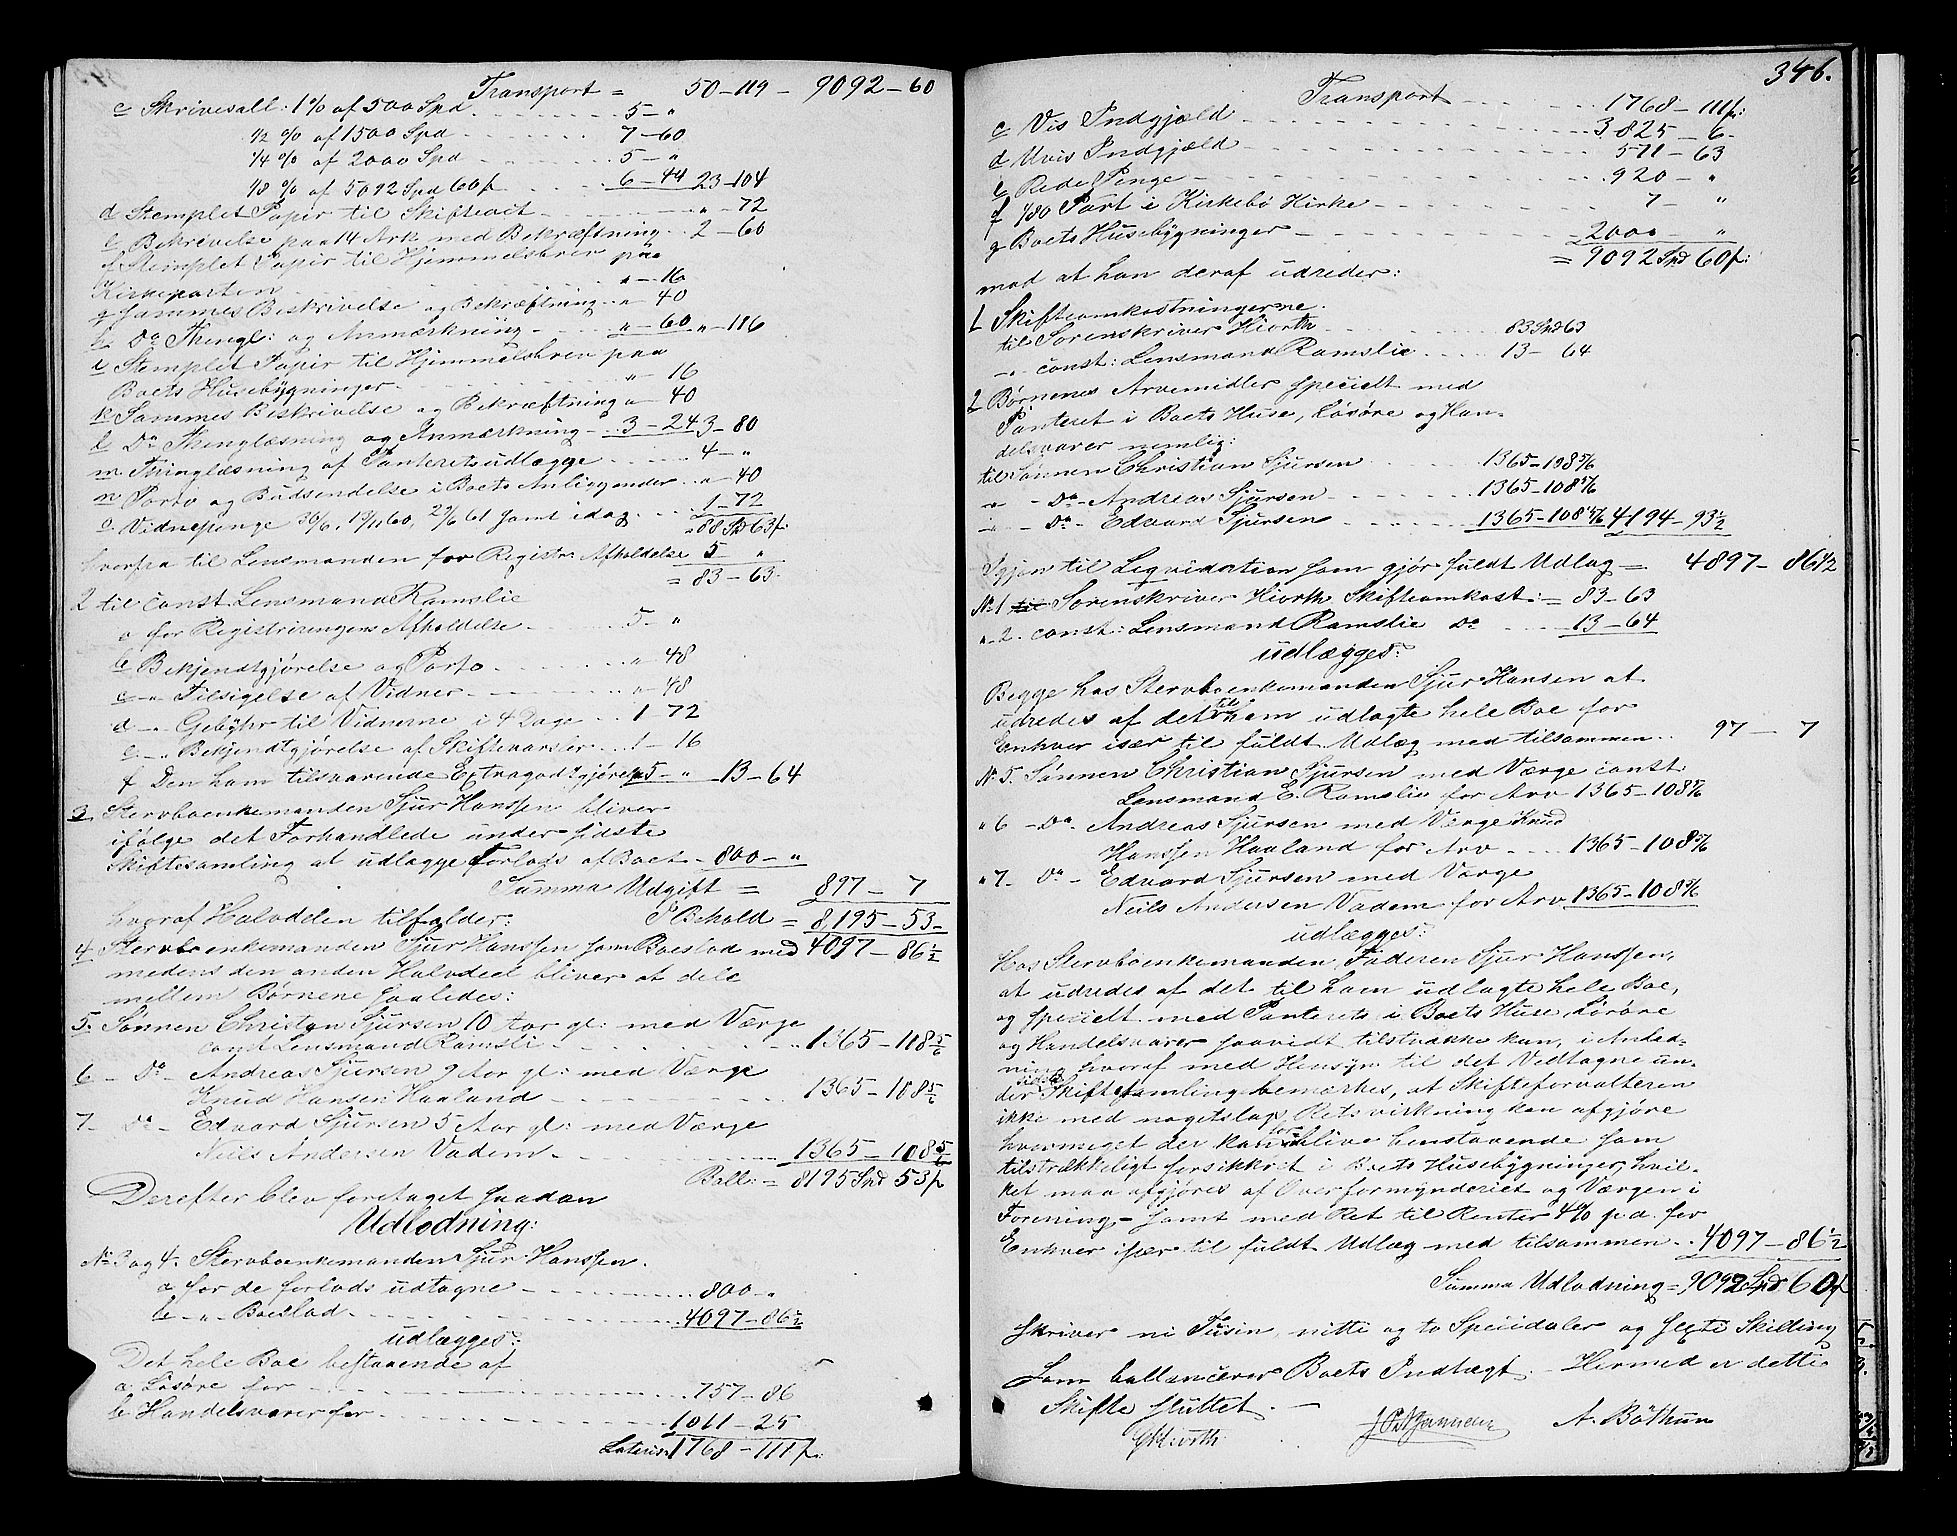 Transport = 50-119- 9092-60
c Skriversall: 1% af 500 Spd 5-"
1/2 % af 1500 Spd 7-60
1/4 % af 2000 Spd 5-"
1/8 % af 5092 Spd 60 f 6-44 23-104
d Stemplet Papir til Skifteact "-72
e Beskrivelse paa 14 Ark med Bekræftning 2-60
f Stemplet Papir til Hjemmelsbrev paa
Kirkeparten "-16
g Sammes Beskrivelse og Bekræftning "-40
h Do Thingl: og Anmærkning "-60 "-116
i Stemplet Papir til Hjemmelsbrev paa
Boets Husebygninger "-16
k Sammes Beskrivelse og Bekræftning "-40
l Do Thinglæsning og Anmærkning 3-24 3-80
m Thinglæsning af Panteretsudlægge 4-"
n Porto og Budsendelse i Boets Anliggender "-40
o Vidnepenge 30/6, 19/11 60, 29/6 61 samt idag 1-72
= 88 Spd 63 f:
hvorfra til Lensmanden for Registr: Afholdelse 5 "
= 83-63.
2 til const. Lensmand Ramslie
a for Registreringens Afholdelse 5-"
b Bekjendtgjørelse og Porto "-48
c -"- Tilsigelse af Vidner "-48
d -"- Gebyhr til Vidnerne i 4 Dage 1-72
e -"- Bekjendtgjørelse af Skiftevarsler 1-16
f Den ham tilsvarende Extragodtgjørelse 5-" 13-64
3 Stervboenkemanden Sjur Hanssen bliver
ifølge det Forhandlede under sidste
Skiftesamling at udlægge Forlods af Boet 800-"
Summa Udgift = 897-7
I Behold = 8195-53
hvoraf Halvdelen tilfalder:
4 Stervboenkemanden Sjur Hanssen som Boeslod med 4097-86½
medens den anden Halvdeel bliver at dele
mellem Børnene saaledes:
5. Sønnen Christen Sjursen 10 Aar gl: med Værge
const Lensmand Ramsli 1365-108 5/6
6 - Do - Andreas Sjursen 9 Aar gl: med Værge
Knud Hansen Haaland 1365-108 5/6
7 - Do - Edvard Sjursen 5 Aar gl: med Værge
Neils Andersen Vadem 1365-108 5/6
Ball: = 8195 Spd 53 f
Derefter blev foretaget saadan
Udlodning:
No 3 og 4. Stervboenkemanden Sjur Hanssen.
a for de forlods udtagne 800-"
b -"- Boeslod 4097-86½
udlægges:
Det hele Boe bestaaende af
a Løsøre for 757-86
b Handelsvarer for 1011-25
Lateris 1768-111 f:
346.
Transport 1768-111 f:
c Vis Indgjæld 3825-6
d Uvis Indgjæld 571-63
e Rede Penge 920-"
f 1/80 Part i Kirkebø Kirke 7-"
g Boets Husebygninger 2000 "
= 9092 Spd 60 f:
mod at han deraf udreder:
1 Skifteomkostningerne.
til Sorenskriver Hiorth 83 Spd 63
-"- const: Lensmand Ramslie 13-64
2 Børnenes Arvemidler specielt med
Panteret i Boets Huse, Løsøre og Han-
delsvarer nemlig:
til Sønnen Christian Sjursen 1365-108 5/6
-"- Do - Andreas Sjursen 1365-108 5/6
-"- Do - Edvard Sjursen 1365-108 5/6 4194-93½
Igjen til Liqvidation som gjør fuldt Udlæg = 4897-86½
No 1 til Sorenskriver Hiorth Skifteomkost: = 83-63
" 2. const: Lensmand Ramslie Do 13-64
udlægges:
Begge hos Stervboenkemanden Sjur Hansen at
udredes af det til ham udlagte hele Boe for
Enhver især til fuldt Udlæg med tilsammen 97-7
No 5. Sønnen Christian Sjursen med Værge const.
Lensmand E. Ramslie for Arv 1365-108 5/6
" 6 - Do - Andreas Sjursen med Værge Knud
Hanssen Haaland for Arv 1365-108 5/6
" 7 - Do - Edvard Sjursen med Værge
Neils Andersen Vadem for Arv 1365-108 5/6
udlægges:
Hos Stervboenkemanden, Faderen Sjur Hanssen,
at udredes af det til ham udlagte hele Boe,
og specielt med Panteret i Boets Huse, Løsøre
og Handelsvarer saavidt tilstrække kan, i Anled-
ning hvoraf med Hensyn til det Vedtagne un-
der sidste Skiftesamling bemærkes, at Skifteforvalteren
ikke med nogetslags Retsvirkning kan afgjøre
hvormeget der kan for blive henstaaende som
tilstrækkeligt forsikkret i Boets Husebygninger, hvil-
ket maa afgjøres af Overformynderiet og Værgen i
Forening, - samt med Ret til Renter 4% p.a. for
Enhver især til fuldt Udlæg med tilsammen 4097-86½
Summa Udlodning = 9092 Spd. 60 f
skriver ni Tusin, nitti og to Speciedaler og sexti Skilling
som ballancerer Boets Indtægt. Hermed er dette
Skifte sluttet. -
GHiorth. A. Bøthun